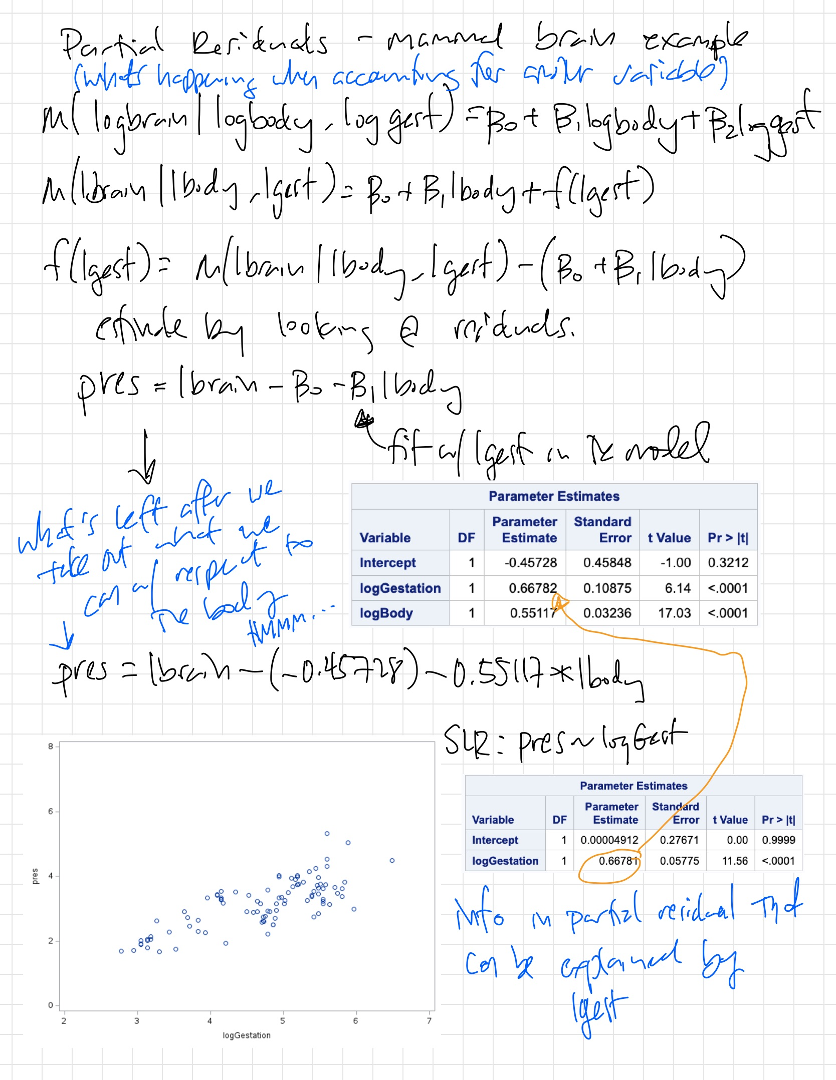 Partial Residuals - mammal brain example
(what's happening when accounting for another variable)
μ(logbrain | logbody, log gest) = B₀ + B₁logbody + B₂loggest
μ(lbrain | lbody, lgest) = B₀ + B₁lbody + f(lgest)
f(lgest) = μ(lbrain | lbody, lgest) - (B₀ + B₁lbody)
estimate by looking @ residuals.
pres = lbrain - B₀ - B₁lbody
fit w/ lgest in the model
what's left after we
take out what we
can w/ respect to
the body
HMMM...
Parameter Estimates
Variable DF Parameter Estimate Standard Error t Value Pr > |t|
Intercept 1 -0.45728 0.45848 -1.00 0.3212
logGestation 1 0.66782 0.10875 6.14 <.0001
logBody 1 0.55117 0.03236 17.03 <.0001
pres = lbrain - (-0.45728) - 0.55117 * lbody
SLR: pres ~ logGest
Parameter Estimates
Variable DF Parameter Estimate Standard Error t Value Pr > |t|
Intercept 1 0.00004912 0.27671 0.00 0.9999
logGestation 1 0.66781 0.05775 11.56 <.0001
info in partial residual that
can be explained by
lgest
pres
8
6
4
2
0
2 3 4 5 6 7
logGestation